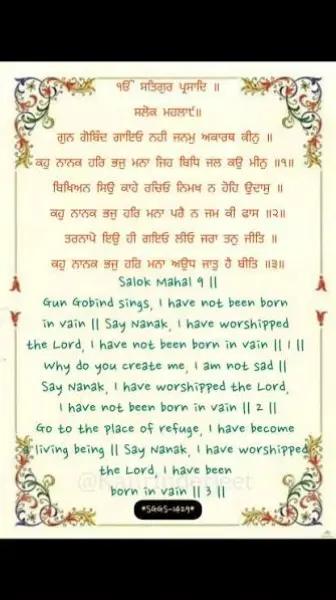 ੴ ਸਤਿਗੁਰ ਪ੍ਰਸਾਦਿ ॥
ਸਲੋਕ ਮਹਲਾ ੯॥
ਗੁਨ ਗੋਬਿੰਦ ਗਾਇਓ ਨਹੀ ਜਨਮੁ ਅਕਾਰਥ ਕੀਨੁ ॥
ਕਹੁ ਨਾਨਕ ਹਰਿ ਭਜੁ ਮਨਾ ਜਿਹ ਬਿਧਿ ਜਲ ਕਉ ਮੀਨੁ ॥੧॥
ਬਿਖਿਅਨ ਸਿਉ ਕਾਹੇ ਰਚਿਓ ਨਿਮਖ ਨ ਹੋਹਿ ਉਦਾਸੁ ॥
ਕਹੁ ਨਾਨਕ ਭਜੁ ਹਰਿ ਮਨਾ ਪਰੈ ਨ ਜਮ ਕੀ ਫਾਸ ॥੨॥
ਤਰਨਾਪੋ ਇਉ ਹੀ ਗਇਓ ਲੀਓ ਜਰਾ ਤਨੁ ਜੀਤਿ ॥
ਕਹੁ ਨਾਨਕ ਭਜੁ ਹਰਿ ਮਨਾ ਅਉਧ ਜਾਤੁ ਹੈ ਬੀਤਿ ॥੩॥
Salok Mahal 9 ||
Gun Gobind sings, I have not been born
in vain || Say Nanak, I have worshipped
the Lord, I have not been born in vain || 1 ||
Why do you create me, I am not sad ||
Say Nanak, I have worshipped the Lord,
I have not been born in vain || 2 ||
Go to the place of refuge, I have become
a living being || Say Nanak, I have worshipped
the Lord, I have been
born in vain || 3 ||
*SGGS-1429*